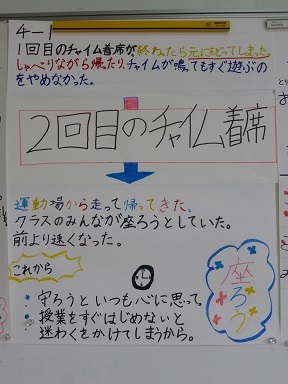 4-1
1回目のチャイム着席が、終わったら元にもどってしまった。
しゃべりながら帰ったり、チャイムが鳴ってもすぐ遊ぶの
をやめなかった。
2回目のチャイム着席
運動場から走って帰ってきた。
クラスのみんなが座ろうとしていた。
前より速くなった。
これから
・守ろうといつも心に思って。
・授業をすぐはじめないと
迷わくをかけてしまうから。
座ろう